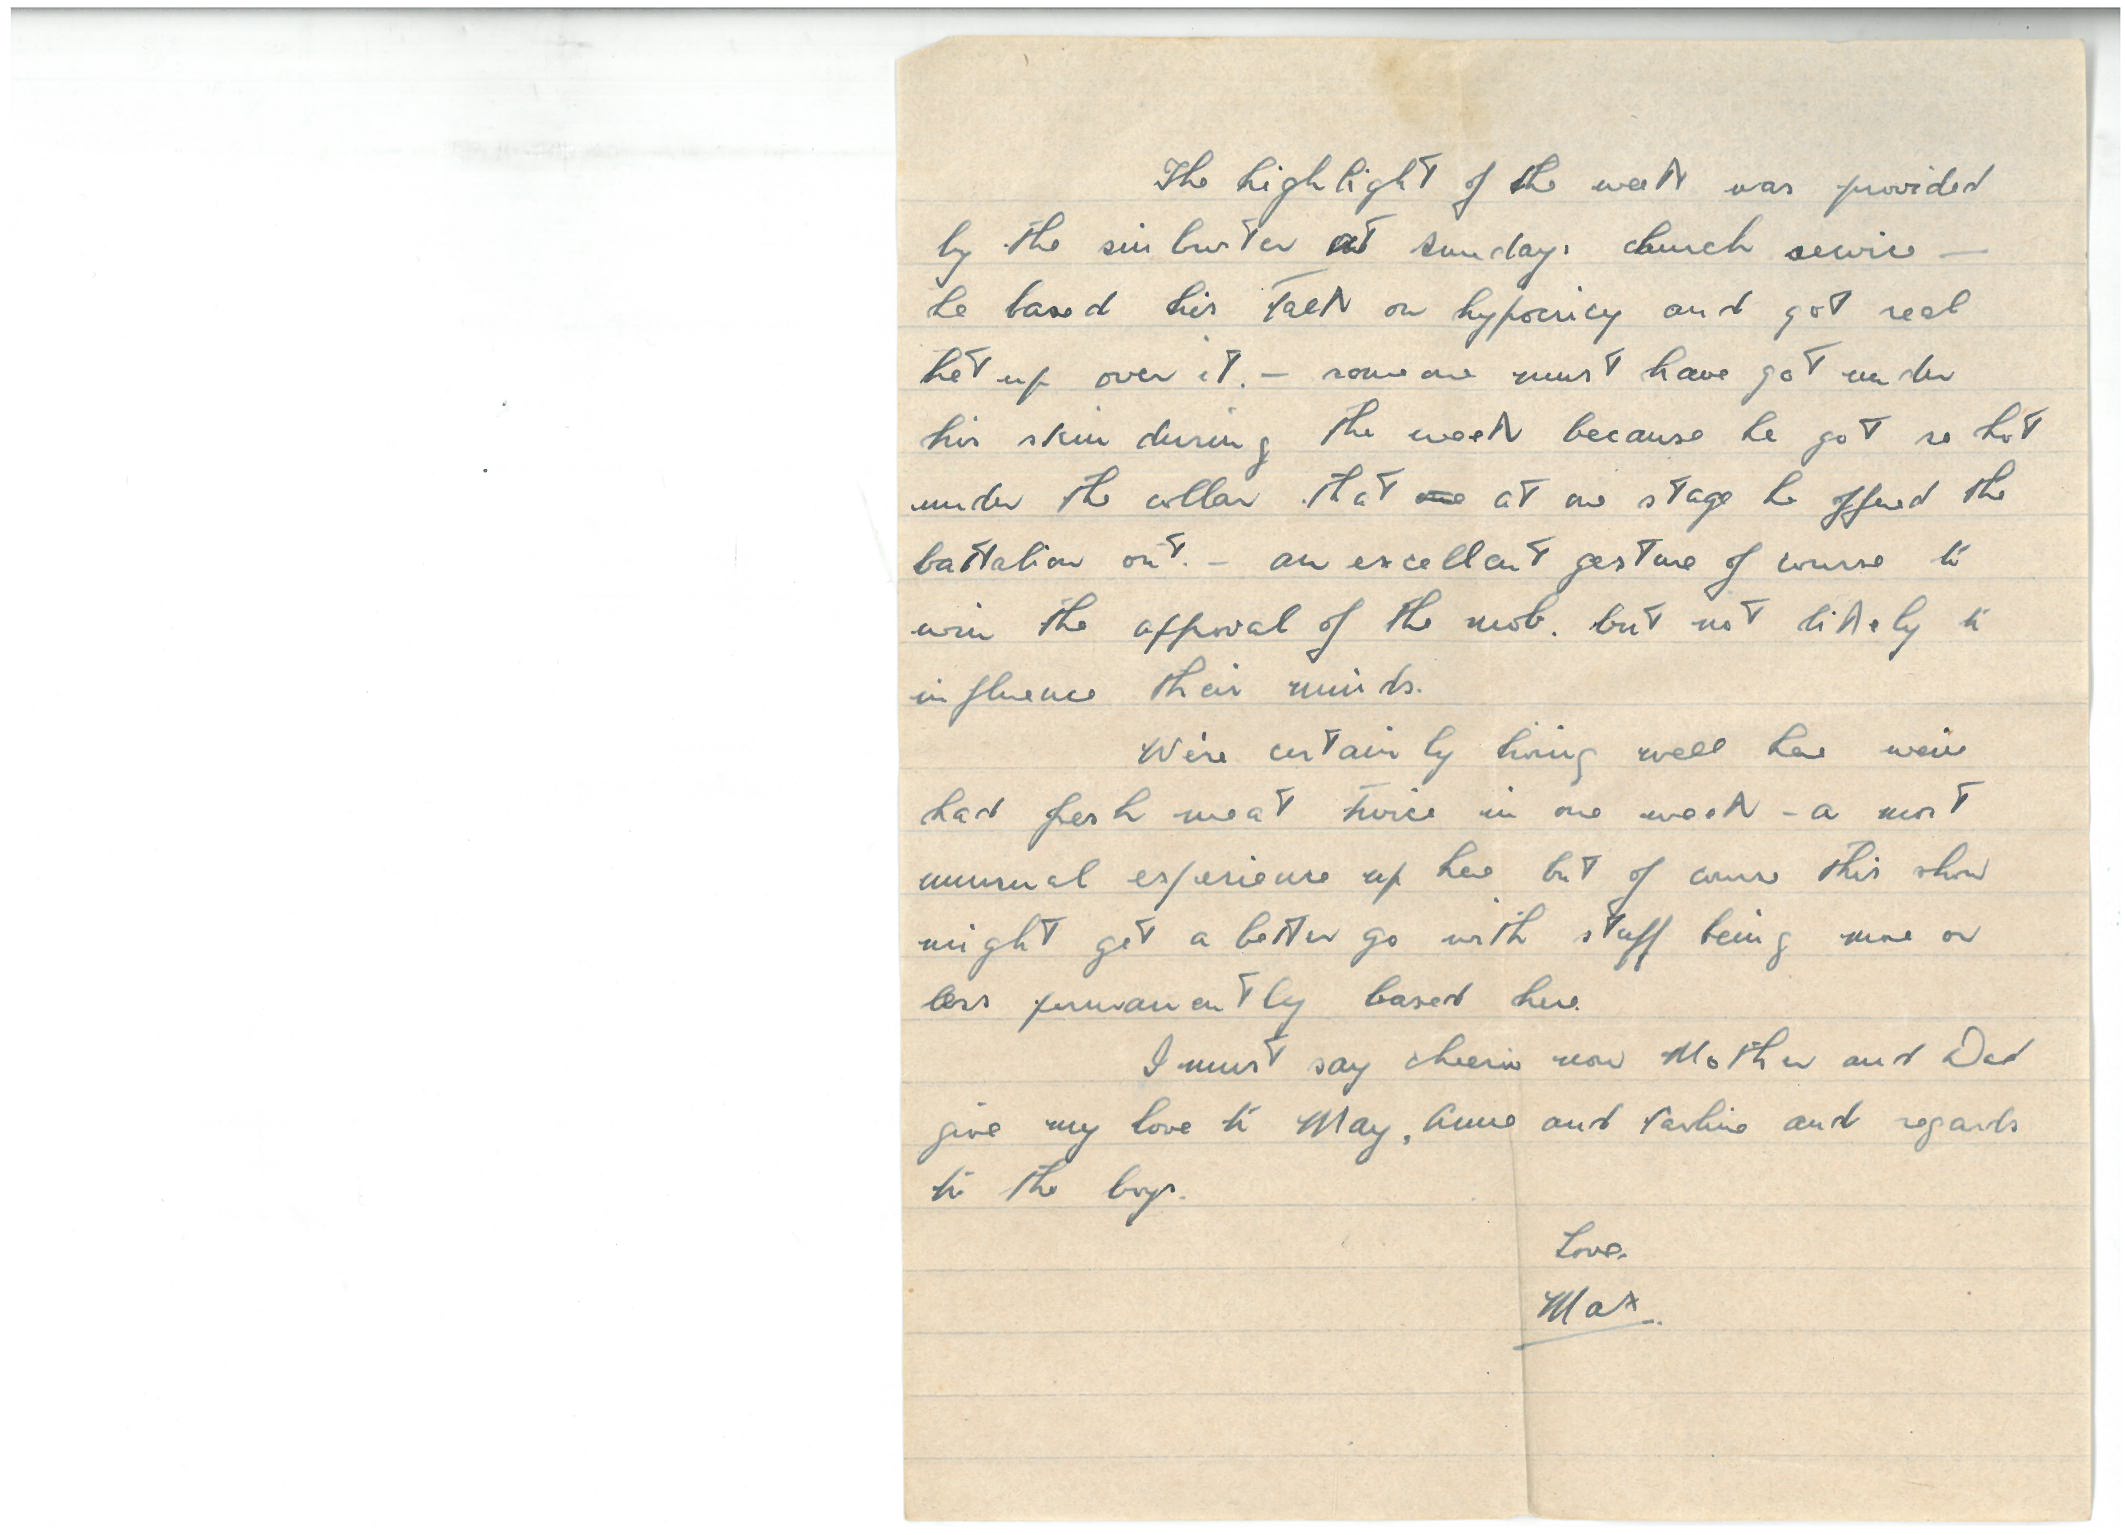 The highlight of the week was provided
by the sin buster at Sundays church service —
he based his talk on hypocricy and got real
het up over it. — someone must have got under
his skin during the week because he got so hot
under the collar that at one stage he offered the
battalion out. — an excellent gesture of course to
win the approval of the mob. but not likely to
influence their minds.
We're certainly living well here weve
had fresh meat twice in one week – a most
unusual experience up here but of course this show
might get a better go with stuff being more or
less permanently based here.
I must say cheerio now Mother and Dad
give my love to May, Anne and and regards
to the boys.
Love.
Max.